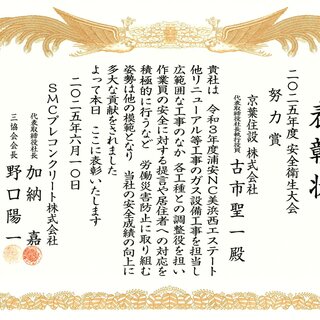 表彰状
二〇二五年度 安全衛生大会
努力賞
京葉住設 株式会社
代表取締役社長執行役員 古市聖一 殿
貴社は 令和3年度浦安NC美浜西エステート
他リニューアル等工事のガス設備工事を担当し
広範囲な工事のなか 各工種との調整役を担い
作業員の安全に対する提言や居住者への対応を
積極的に行うなど 労働災害防止に取り組む
姿勢は他の模範となり 当社の安全成績の向上に
多大な貢献をされました
よって本日 ここに表彰いたします
二〇二五年六月一〇日
SMCプレコンクリート株式会社
代表取締役社長 加納 嘉
三協会会長 野口陽一